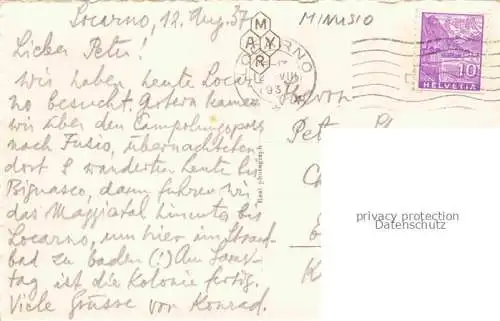 Locarno, 12. Aug. 37
Lieber Peter!
Wir haben heute Locar-
no besucht. Gestern kamen
wir über den Campolungopass
nach Fusio, übernachteten
dort & wanderten heute bis
Bignasco, dann fuhren wir
das Maggiatal hinunter bis
Locarno, um hier im Strand-
bad zu baden (!) Am Sams-
tag ist die Kolonie fertig.
Viele Grüsse von Konrad.
MAYR
Real photograph
MINUSIO
LOCARNO
12 VIII
193
10
HELVETIA
Herrn
Pet
privacy protection
Datenschutz